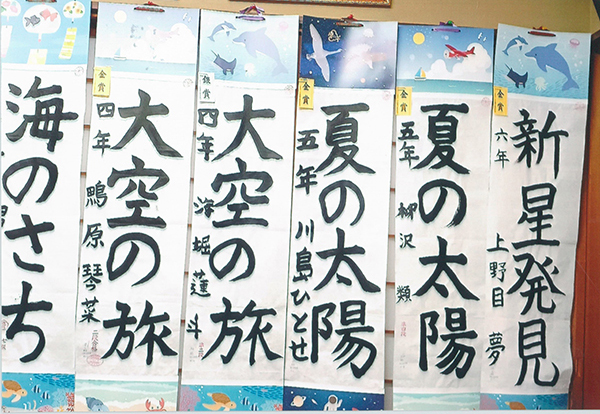 新星発見
金賞
六年 上野目 夢
夏の太陽
金賞
五年 柳沢 類
夏の太陽
金賞
五年 川島ひとせ
大空の旅
銀賞
四年 海堀蓮斗
大空の旅
金賞
四年 鴨原琴菜
海のさち